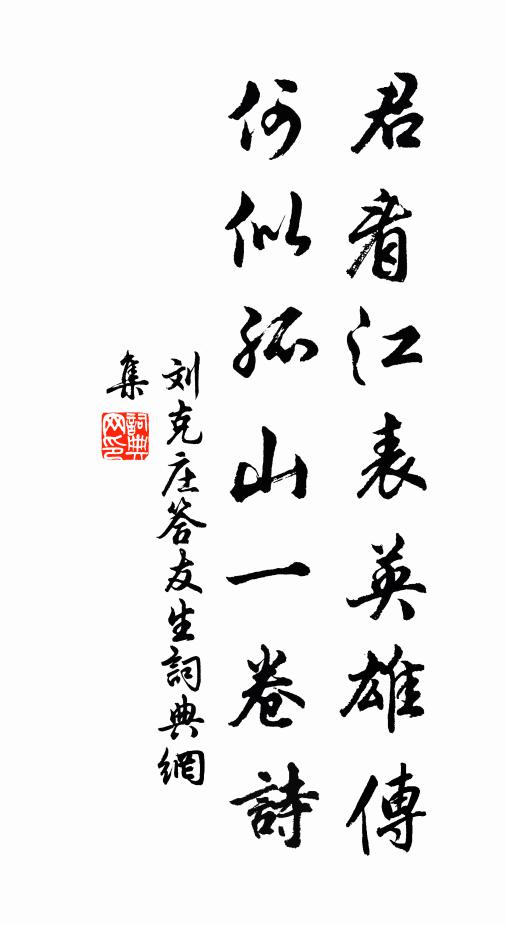 君看江表英雄傳
何似孤山一卷詩
刘克庄答友生詞典網
集
詞典
网印